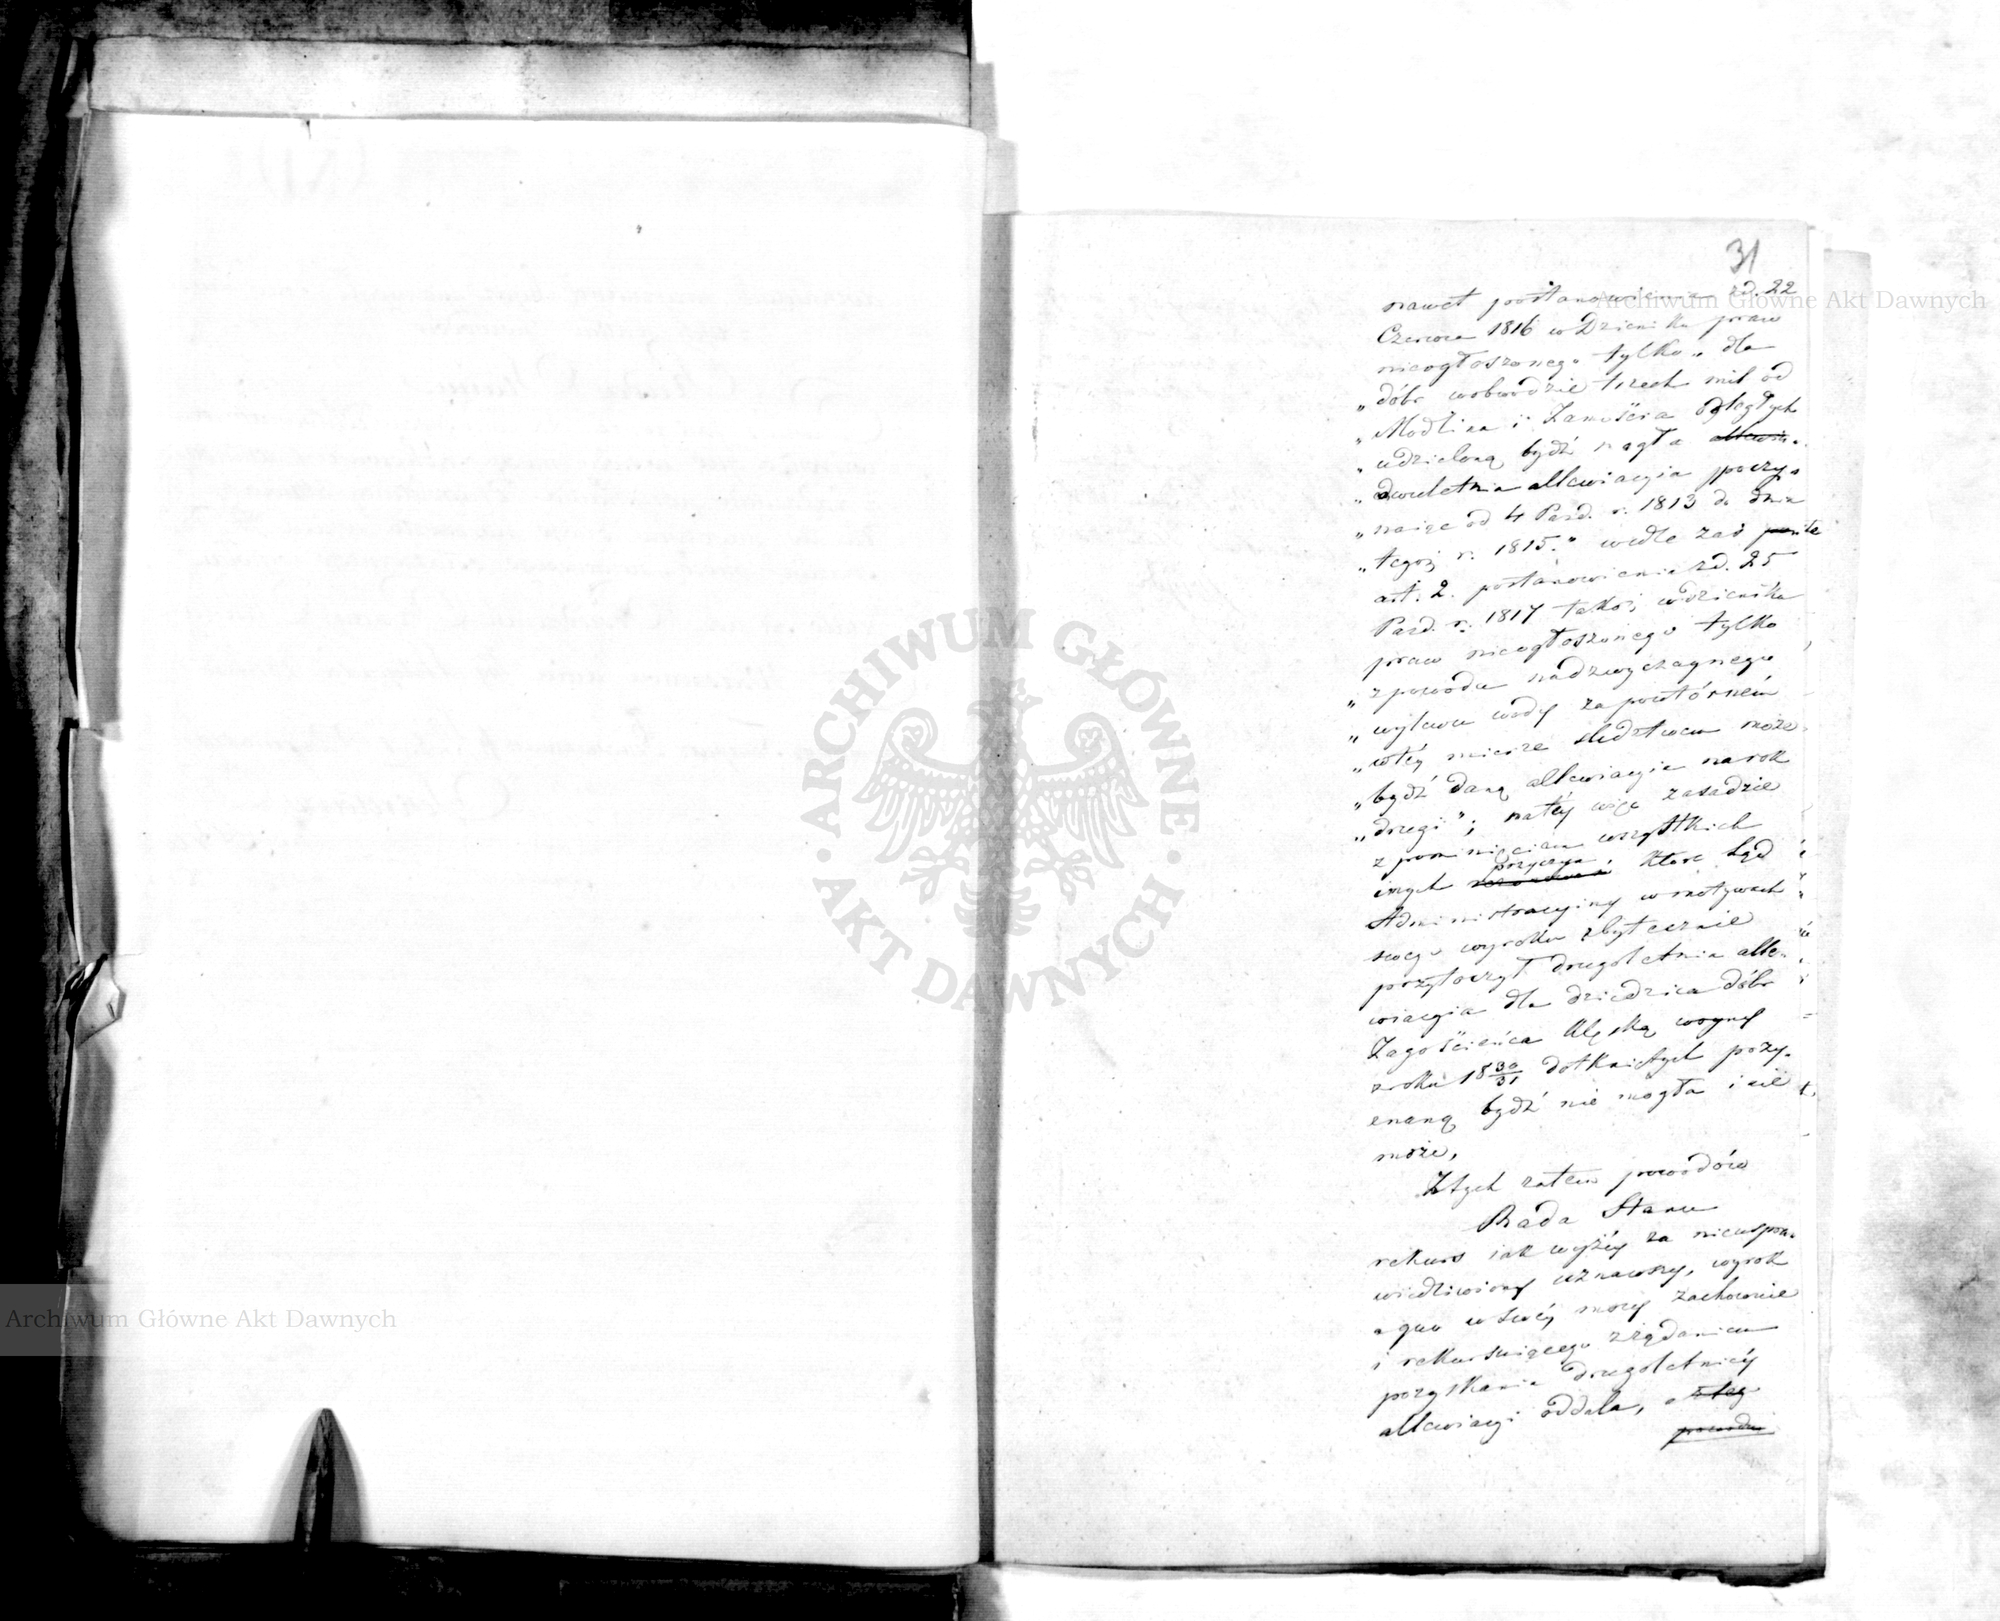 31
nawet postanowienia z d. 22
Czerwca 1816 w Dzienniku praw
nieogłoszonego tylko „dla
„dóbr wobwodzie trzech mil od
„Modlina i Zamościa odległych
„udzieloną bydź mogła allewia-
„dwuletnia allewiacyia poczy-
„naiąc od 4 Pazd. r. 1813 do dnia
„tegoż r. 1815." wedle zaś
art. 2. postanowienia z d. 25
Pazd. r. 1817 także w dzienniku
praw nieogłoszonego tylko
„z powodu nadzwyczaynego
„wylewu wody za powtórném
„wtéy mierze śledztwem może
„bydź daną allewiacyia na rok
„drugi"; natéy więc zasadzie
z pominięciem wszystkich
innych przyczyn które Sąd
Administracyiny w motywach
swego wyroku zbytecznie
przytoczył drugoletnia alle-
wiacyia dla dziedzica dóbr
Zagościńca klęską woyny
z roku 18 30/31 dotkniętych przy-
znaną bydź nie mogła i nie
może,
Ztych zatem powodów
Rada Stanu
rekurs iak wyżéy za nieuspra-
wiedliwiony uznawszy, wyrok
a quo w swéy mocy zachowuie
i rekursuiącego z żądaniem
pozyskania drugoletniéy
allewiacyi oddala, z tego
powodu
Archiwum Główne Akt Dawnych
Archiwum Główne Akt Dawnych
ARCHIWUM GŁÓWNE
AKT DAWNYCH